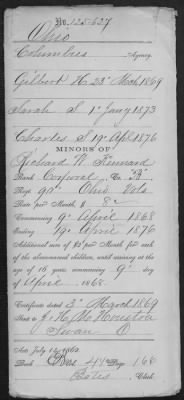 No. 125-627
Ohio
Columbus Agency.
Gilbert H. 23 March 1869
Sarah S 1 Jany 1873
Charles S 19 Apl 1876
MINORS OF
Richard W. Kennard
Rank Corporal Co. "B"
Regt 90th Ohio Vols
Rate per Month $ 8
Commencing 9 April 1868
Ending 19 April 1876
Additional sum of $2 per Month for each of
the abovenamed children, until arriving at the
age of 16 years commencing 9 day
of April 1868.
Certificate dated 3 March 1869
Sent to
Act July 14, 1862
Book Page 166
Clerk.